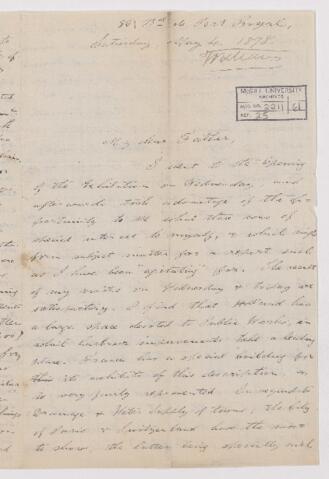 88, Bd. de Port Royal,
Saturday May 4, 1878.
McGILL UNIVERSITY
ARCHIVES
ACC. NO. 2211 61
REF. 25
My dear Father,
I went to the opening
of the Exhibition on Wednesday, and
afterwards took advantage of the op-
portunity to see what there was of
special interest to myself, & which might
form subject matter for a report such
as I have been agitating for. The result
of my visits on Wednesday & today are
satisfactory. I find that Holland has
a large space devoted to Public Works, in
which harbour improvements take a leading
place. France has a special building for
its exhibits of this description, &
is very fairly represented. In regard to
Drainage & Water Supply of towns, the City
of Paris & Switzerland had the most
to show, the latter being specially rich